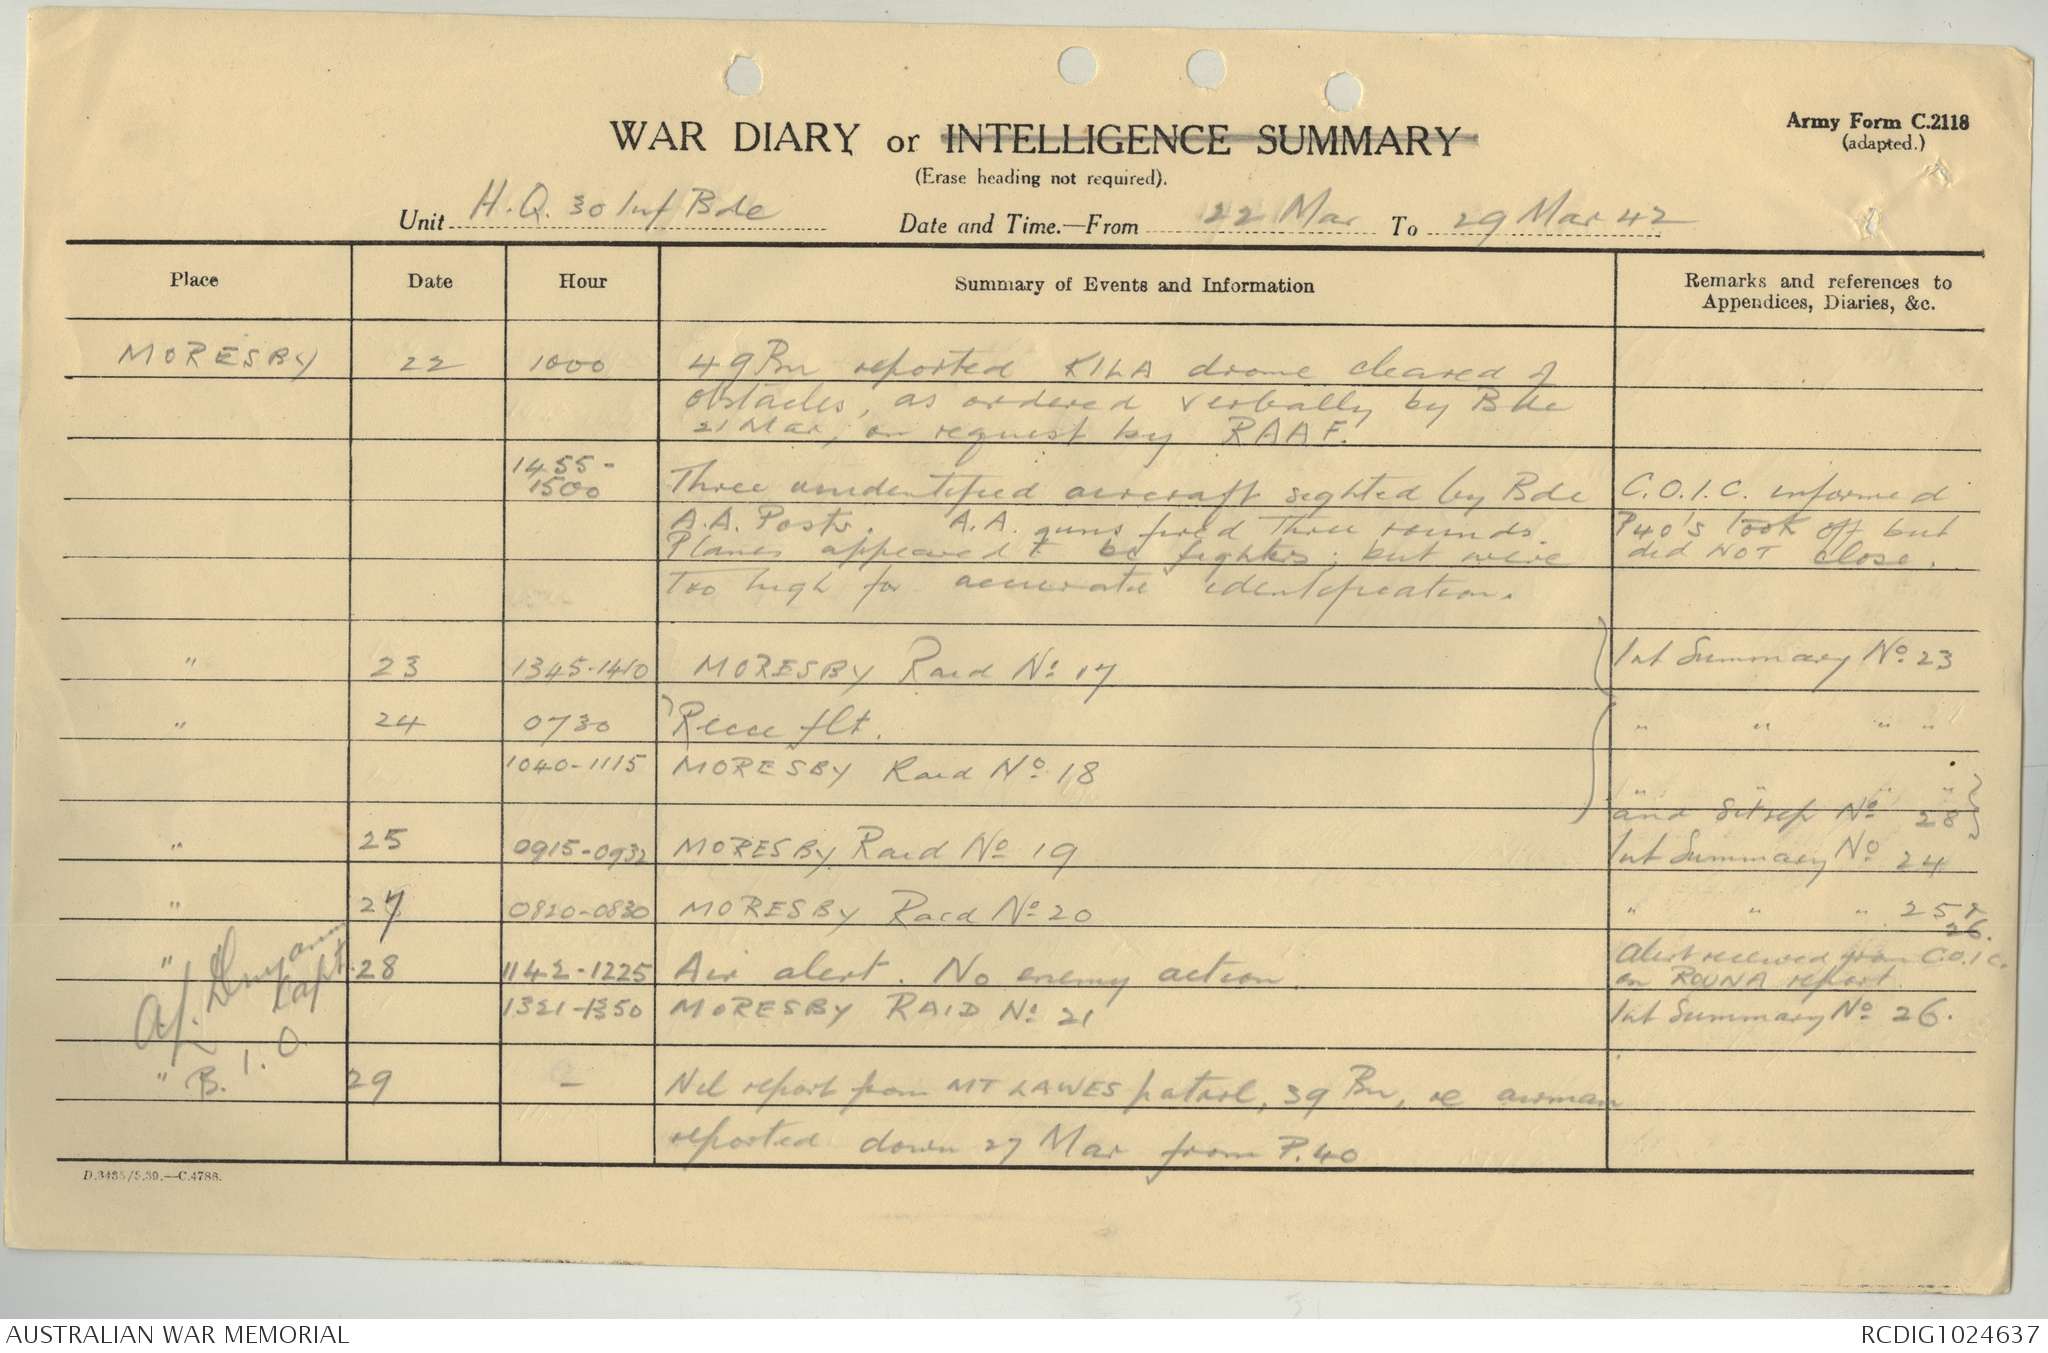 Army Form C.2118
(adapted.)
WAR DIARY or INTELLIGENCE SUMMARY
(Erase heading not required).
Unit H.Q. 30 Inf Bde Date and Time.—From 22 Mar To 29 Mar 42
Place Date Hour Summary of Events and Information Remarks and references to
Appendices, Diaries, &c.
MORESBY 22 1000 49 Bn reported KILA drome cleared of
obstacles, as ordered verbally by Bde
21 Mar, on request by RAAF.
1455-
1500 Three unidentified aircraft sighted by Bde C.O.I.C. informed
A.A. Posts. A.A. guns fired three rounds. P40's took off but
Planes appeared to be fighters; but were did NOT close.
too high for accurate identification.
" 23 1345-1410 MORESBY Raid No. 17 Int Summary No. 23
" 24 0730 Recce flt. " " " "
1040-1115 MORESBY Raid No. 18
" " " "
and Sitrep No. 28
" 25 0915-0932 MORESBY Raid No 19 Int Summary No 24
" 27 0820-0830 MORESBY Raid No. 20 " " " 25 &
26.
" 28 1142-1225 Air alert. No enemy action. Alert received from C.O.I.C.
Capt. on ROUNA report.
1321-1350 MORESBY RAID No. 21 Int Summary No. 26.
B. I. O.
" 29 - Nil report from MT LAWES patrol, 39 Bn, re airman
reported down 27 Mar from P.40
D.3435/5.39.—C.4788.
AUSTRALIAN WAR MEMORIAL RCDIG1024637